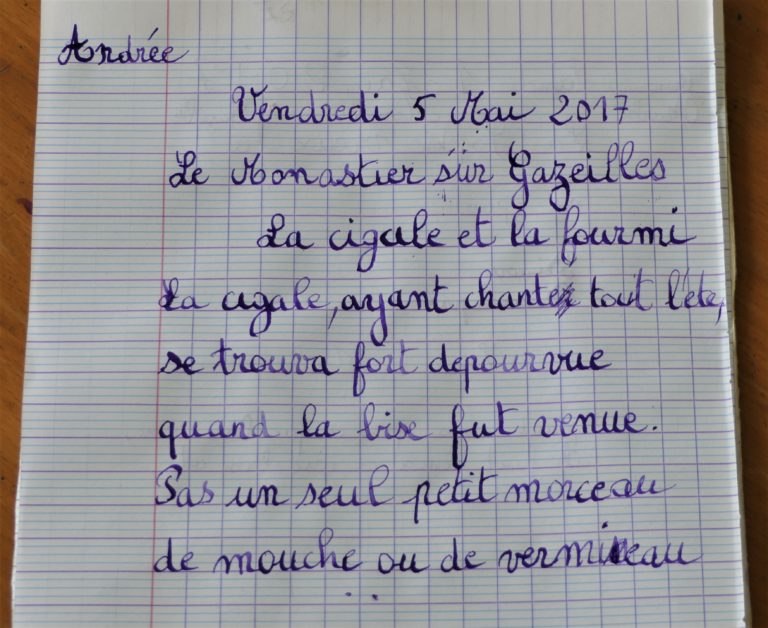 Andrée
Vendredi 5 Mai 2017
Le Monastier sur Gazeilles
La cigale et la fourmi
La cigale, ayant chanté tout l'été,
se trouva fort depourvue
quand la bise fut venue.
Pas un seul petit morceau
de mouche ou de vermiseau